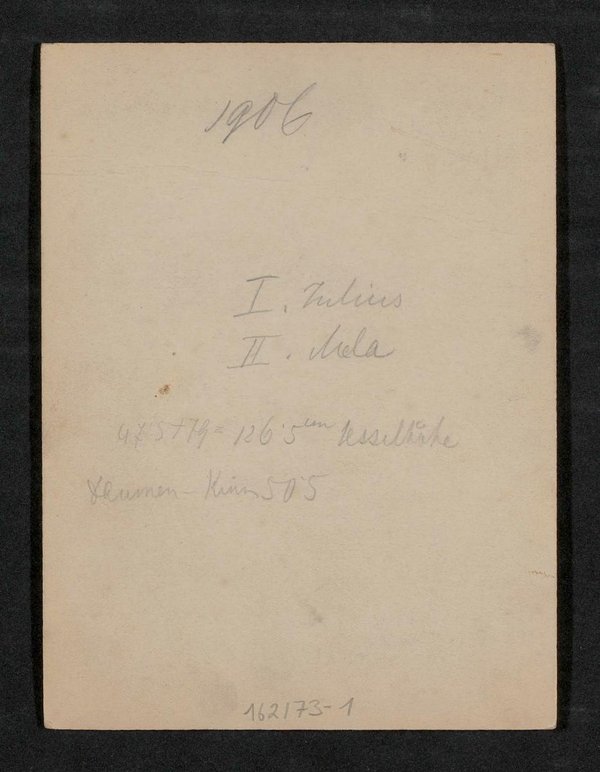 1906
I. Julius
II. Mela
47·5+79=126·5 cm Sesselhöhe
Daumen-Kinn 50·5
162173-1